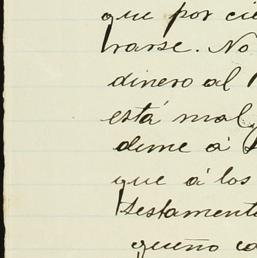 que por cie
trarse. No
dinero al
está mal,
dime á
que á los
testamento
queño co